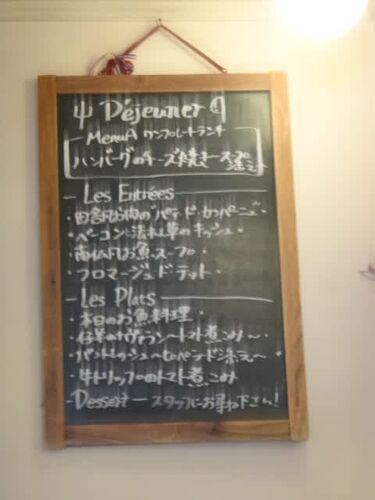 Déjeuner
MenuA ワンプレートランチ
ハンバーグのチーズ焼き スープ添え
Les Entrées
・田舎風お肉のパテ・ド・カンパーニュ・
・ベーコンと法れん草のキッシュ・
・南仏風お魚スープ・
・フロマージュ・ド・テット・
Les Plats
・本日のお魚料理・
・仔羊のナヴァラン〜トマト煮こみ〜・
・パントルッシュ〜タペナード添え〜
・牛トリップのトマト煮こみ
Dessert ー スタッフにお尋ね下さい!